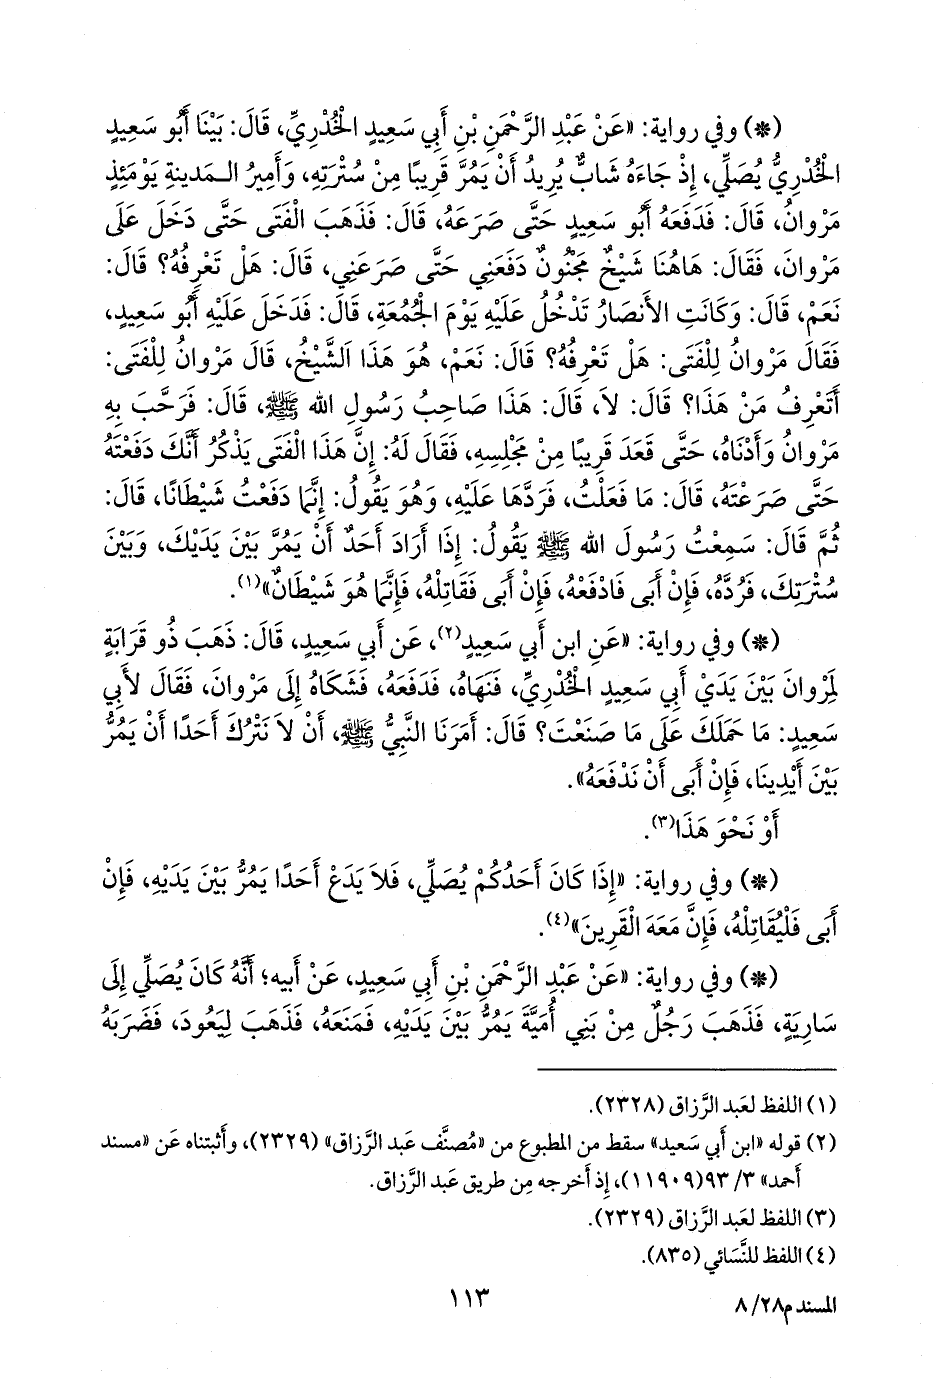 (*) وفي رواية: «عَنْ عَبْدِ الرَّحْمَنِ بْنِ أَبِي سَعِيدٍ الْخُدْرِيِّ، قَالَ: بَيْنَا أَبُو سَعِيدٍ
الْخُدْرِيُّ يُصَلِّي، إِذْ جَاءَهُ شَابٌّ يُرِيدُ أَنْ يَمُرَّ قَرِيبًا مِنْ سُتْرَتِهِ، وَأَمِيرُ الـمَدينةِ يَوْمَئِذٍ
مَرْوانُ، قَالَ: فَدَفَعَهُ أَبُو سَعِيدٍ حَتَّى صَرَعَهُ، قَالَ: فَذَهَبَ الْفَتَى حَتَّى دَخَلَ عَلَى
مَرْوانَ، فَقَالَ: هَاهُنَا شَيْخٌ مَجْنُونٌ دَفَعَنِي حَتَّى صَرَعَنِي، قَالَ: هَلْ تَعْرِفُهُ؟ قَالَ:
نَعَمْ، قَالَ: وَكَانَتِ الأَنصَارُ تَدْخُلُ عَلَيْهِ يَوْمَ الْجُمُعَةِ، قَالَ: فَدَخَلَ عَلَيْهِ أَبُو سَعِيدٍ،
فَقَالَ مَرْوانُ لِلْفَتَى: هَلْ تَعْرِفُهُ؟ قَالَ: نَعَمْ، هُوَ هَذَا الشَّيْخُ، قَالَ مَرْوانُ لِلْفَتَى:
أَتَعْرِفُ مَنْ هَذَا؟ قَالَ: لاَ، قَالَ: هَذَا صَاحِبُ رَسُولِ الله ﷺ، قَالَ: فَرَحَّبَ بِهِ
مَرْوانُ وَأَدْنَاهُ، حَتَّى قَعَدَ قَرِيبًا مِنْ مَجْلِسِهِ، فَقَالَ لَهُ: إِنَّ هَذَا الْفَتَى يَذْكُرُ أَنَّكَ دَفَعْتَهُ
حَتَّى صَرَعْتَهُ، قَالَ: مَا فَعَلْتُ، فَرَدَّهَا عَلَيْهِ، وَهُوَ يَقُولُ: إِنَّمَا دَفَعْتُ شَيْطَانًا، قَالَ:
ثُمَّ قَالَ: سَمِعْتُ رَسُولَ الله ﷺ يَقُولُ: إِذَا أَرَادَ أَحَدٌ أَنْ يَمُرَّ بَيْنَ يَدَيْكَ، وَبَيْنَ
سُتْرَتِكَ، فَرُدَّهُ، فَإِنْ أَبَى فَادْفَعْهُ، فَإِنْ أَبَى فَقَاتِلْهُ، فَإِنَّمَا هُوَ شَيْطَانٌ»(١).
(*) وفي رواية: «عَنِ ابن أَبي سَعِيدٍ(٢)، عَن أَبي سَعِيدٍ، قَالَ: ذَهَبَ ذُو قَرَابَةٍ
لِمَرْوانَ بَيْنَ يَدَيْ أَبِي سَعِيدٍ الْخُدْرِيِّ، فَنَهَاهُ، فَدَفَعَهُ، فَشَكَاهُ إِلَى مَرْوانَ، فَقَالَ لأَبِي
سَعِيدٍ: مَا حَمَلَكَ عَلَى مَا صَنَعْتَ؟ قَالَ: أَمَرَنَا النَّبِيُّ ﷺ، أَنْ لاَ نَتْرُكَ أَحَدًا أَنْ يَمُرُّ
بَيْنَ أَيْدِينَا، فَإِنْ أَبَى أَنْ نَدْفَعَهُ».
أَوْ نَحْوَ هَذَا(٣).
(*) وفي رواية: «إِذَا كَانَ أَحَدُكُمْ يُصَلِّي، فَلاَ يَدَعْ أَحَدًا يَمُرُّ بَيْنَ يَدَيْهِ، فَإِنْ
أَبَى فَلْيُقَاتِلْهُ، فَإِنَّ مَعَهَ الْقَرِينَ»(٤).
(*) وفي رواية: «عَنْ عَبْدِ الرَّحْمَنِ بْنِ أَبِي سَعِيدٍ، عَنْ أَبيه؛ أَنَّهُ كَانَ يُصَلِّي إِلَى
سَارِيَةٍ، فَذَهَبَ رَجُلٌ مِنْ بَنِي أُمَيَّةَ يَمُرُّ بَيْنَ يَدَيْهِ، فَمَنَعَهُ، فَذَهَبَ لِيَعُودَ، فَضَرَبَهُ
(١) اللفظ لعَبد الرَّزاق (٢٣٢٨).
(٢) قوله «ابن أَبي سَعيد» سقط من المطبوع من «مُصنَّف عَبد الرَّزاق» (٢٣٢٩)، وأَثبتناه عَن «مسند
أَحمد» ٣/ ٩٣(١١٩٠٩)، إِذ أَخرجه مِن طريق عَبد الرَّزاق.
(٣) اللفظ لعَبد الرَّزاق (٢٣٢٩).
(٤) اللفظ للنَّسَائي (٨٣٥).
١١٣
المسند م٢٨/ ٨